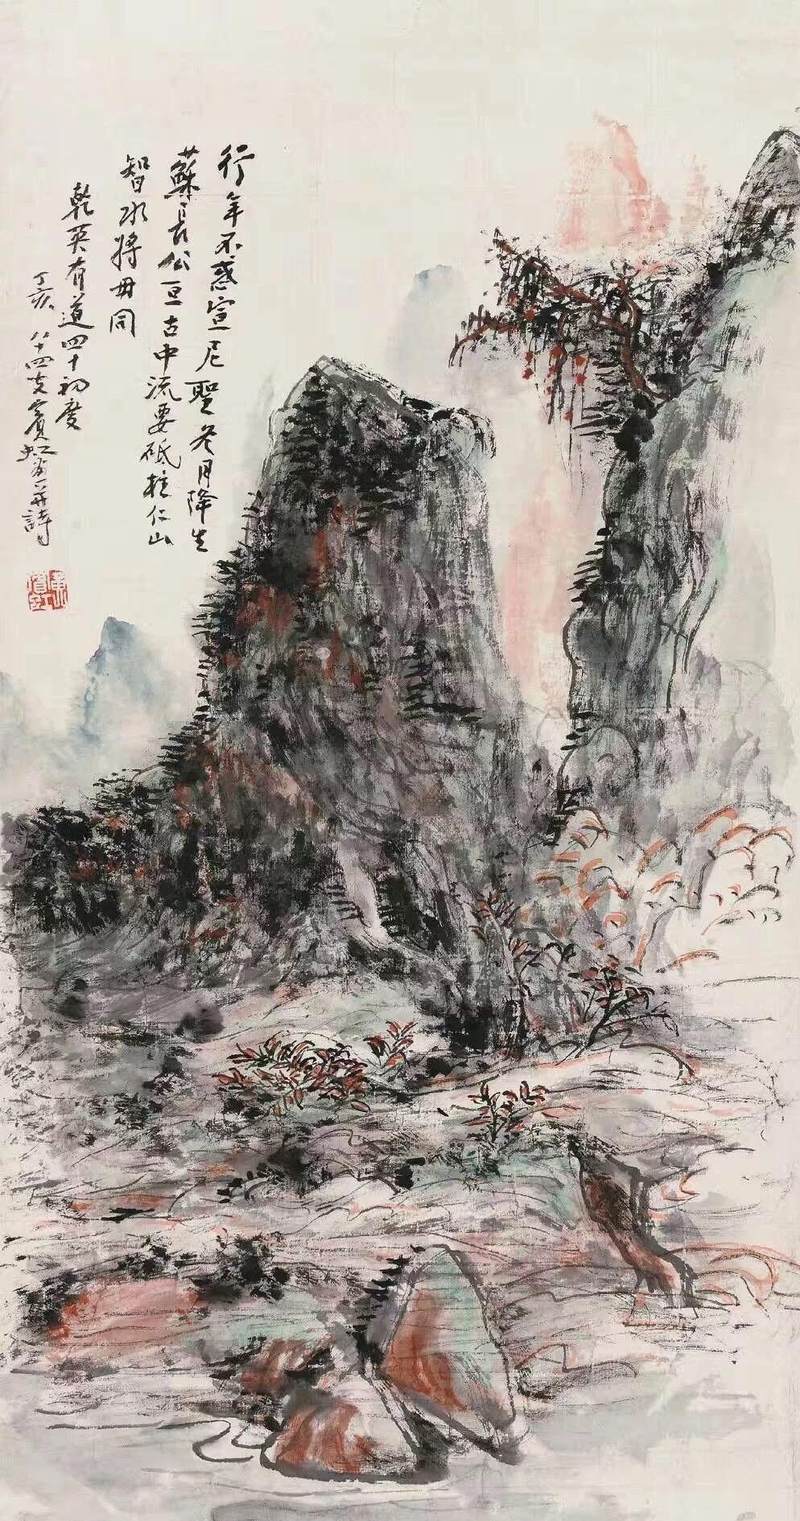 行年不惑宣尼聖冬月降生
蘇長公亘古中流要砥柱仁山
智水將毋同
乾英有道四十初度
丁亥八十四叟賓虹畫并詩
黃賓虹